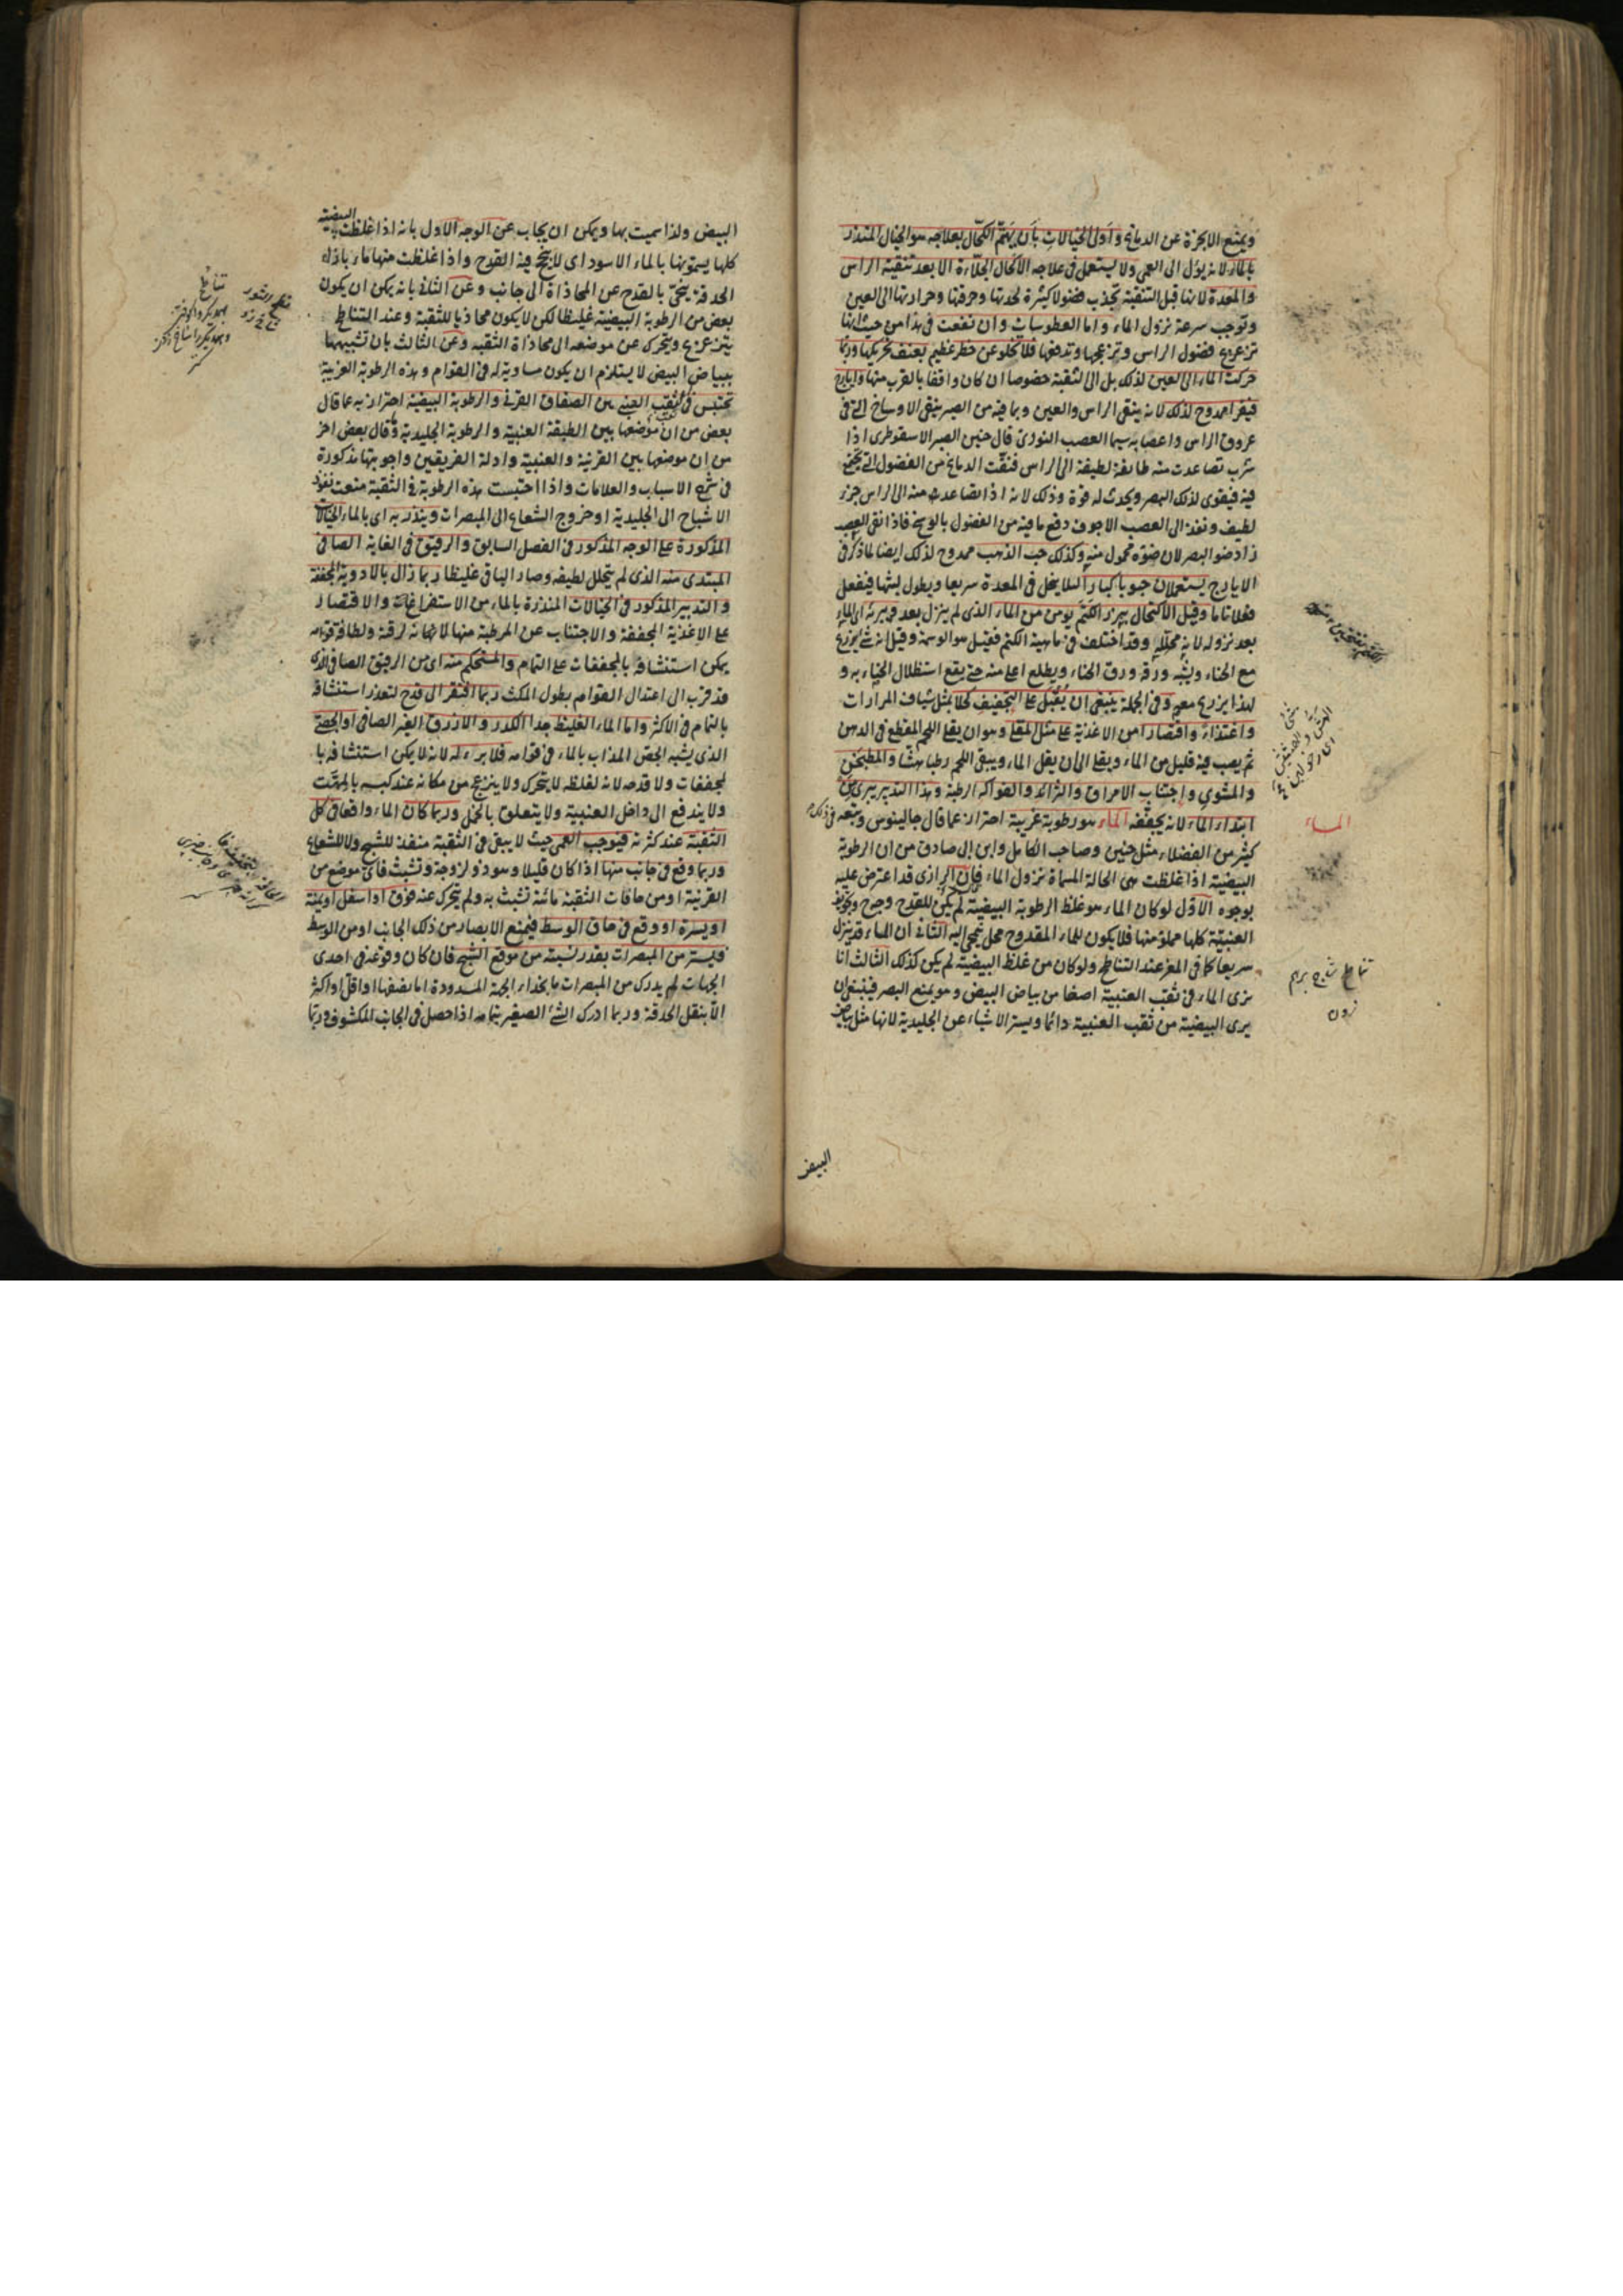 ويمنع الابخرة عن الدماغ واولى الخيالات بان يهتم الكحال بعلاجه هو الخيال المنذر
بالماء لانه يؤل الى العمى ولا يستعمل فى علاجه الاكحال الجلاءة الا بعد تنقية الراس
والمعدة لانها قبل التنقية تجذب فضولا كثيرة لحدتها وحرقتها وحرارتها الى العين
وتوجب سرعة نزول الماء واما العطوسات وان نفعت فى هذا من حيث انها
تزعزع فضول الراس وتزعجها وتدفعها فلا تخلو عن خطر عظيم بعنف تحريكها وربما
حركت الماء الى العين لذلك بل الى الثقبة خصوصا ان كان واقفا بالقرب منها وايارج
فيقرا ممدوح لذلك لانه ينقى الراس والعين وبما فيه من الصبر ينقى الاوساخ التى فى
عروق الراس واعصابه سيما العصب النورى قال حنين الصبر الاسقوطرى اذا
شرب تصاعدت منه طائفة لطيفة الى الراس فنقت الدماغ من الفضول التى تجتمع
فيه فيقوى لذلك البصر ويحدث له قوة وذلك لانه اذا تصاعدت منه الى الراس جزء
لطيف ونفذ الى العصب الاجوف دفع ما فيه من الفضول بالوسخ فاذا نقى العصب
زاد ضوء البصر لان ضوه محمول منه وكذلك حب الذهب ممدوح لذلك ايضا لما ذكر فى
الايارج يستعملان حبوبا كبارا لئلا يخل فى المعدة سريعا ويطول لبثها فيفعل
فعلا تاما وقيل الاكتحال ببزر الكتم يومن من الماء الذى لم ينزل بعد ويبرئه اى الماء
بعد نزوله لانه محلله وقد اختلف فى ماهية الكتم فقيل هو الوسمة وقيل انه شئ يزرع
مع الحناء ويشبه ورقه ورق الحناء ويطلع اعلى منه حتى يقع استظلال الحناء به و
لهذا يزرع معه وفى الجملة ينبغى ان يقبل على التجفيف كحلا بمثل شياف المرارات
واغتذاء واقتصارا من الاغذية على مثل المقلى وهو ان يقلى اللحم المقطع فى الدهن
ثم يصب فيه قليل من الماء ويقلى الى ان يقل الماء ويبقى اللحم رطبا هشا والمطجن
والمشوى واجتناب الامراق والثرائد والفواكه الرطبة وهذا التدبير يبرى من
ابتداء الماء لانه يجففه الماء هو رطوبة غريبة احتراز عما قال جالينوس وتبعه فى ذلك
كثير من الفضلاء مثل حنين وصاحب الكامل وابن ابى صادق من ان الرطوبة
البيضية اذا غلظت هى الحالة المسماة نزول الماء فان الرازى قد اعترض عليه
بوجوه الاول لو كان الماء هو غلظ الرطوبة البيضية لم يكن للقدح وجه وتجويف
العنبية كلها مملؤ منها فلا يكون للماء المقدوح محل تنحى اليه الثانى ان الماء قد ينزل
سريعا كما فى المعز عند التناطح ولو كان من غلظ البيضية لم يكن كذلك الثالث انا
نرى الماء فى ثقب العنبية اصفا من بياض البيض وهو يمنع البصر فينبغى ان
يرى البيضية من ثقب العنبية دائما ويستر الاشياء عن الجليدية لانها مثل بياض
الماء
تناطح شاخ برهم
زدن
البيض
البيض ولذا سميت بها ويمكن ان يجاب عن الوجه الاول بانه اذا غلظت البيضية
كلها يسمونها بالماء الاسود اى لا ينجح فيه القدح واذا غلظت منها ماء باذاء
الحدقة ينحى بالقدح عن المحاذاة الى جانب وعن الثانى بانه يمكن ان يكون
بعض من الرطوبة البيضية غليظا لكن لا يكون محاذيا للثقبة وعند التناطح
يتزعزع ويتحرك عن موضعه الى محاذاة الثقبه وعن الثالث بان تشبيهها
ببياض البيض لا يستلزم ان يكون مساوية له فى القوام وهذه الرطوبة الغريبة
تحتبس فى ثقب العنبى بين الصفاق القرنى والرطوبة البيضية احتراز به عما قال
بعض من ان موضعها بين الطبقة العنبية والرطوبة الجليدية وقال بعض اخر
من ان موضعها بين القرنية والعنبية وادلة الفريقين واجوبتها مذكورة
فى شرح الاسباب والعلامات واذا احتبست هذه الرطوبة فى الثقبة منعت نفوذ
الاشباح الى الجليدية او خروج الشعاع الى المبصرات وينذر به اى بالماء الخيالات
المذكورة على الوجه المذكور فى الفصل السابق والرقيق فى الغاية الصافى
المبتدى منه الذى لم يتحلل لطيفه وصار الباقى غليظا ربما زال بالادوية المجففة
والتدبير المذكور فى الخيالات المنذرة بالماء من الاستفراغات والاقتصار
على الاغذية المجففة والاجتناب عن المرطبة منها لانها لرقة ولطافة قوامه
يمكن استنشافه بالمجففات على التمام والمستحكم منه اى من الرقيق الصافى الذى
قد قرب الى اعتدال القوام بطول المكث ربما افتقر الى قدح لتعذر استنشافه
بالتمام فى الاكثر واما الماء الغليظ جدا الكدر والازرق الغير الصافى او الجصى
الذى يشبه الجص المذاب بالماء فى قوامه فلا برء له لانه لا يمكن استنشافه با
لمجففات ولا قدحه لانه لغلظه لا يتحرك ولا ينزعج من مكانه عند كبسه بالمهت
ولا يندفع الى داخل العنبية ولا يتعلق بالخمل وربما كان الماء واقعا فى كل
الثقبة عند كثرته فيوجب العمى حيث لا يبقى فى الثقبة منفذ للشبح ولا للشعاع
وربما وقع فى جانب منها اذا كان قليلا وهو ذو لزوجة وتشبث فاى موضع من
القرنية او من حافات الثقبة ماسه تشبث به ولم يتحرك عنه فوق او اسفل او يمنة
او يسرة او وقع فى حاق الوسط فيمنع الابصار من ذلك الجانب او من الوسط
فيستر من المبصرات بقدر نسبته من موقع الشبح فان كان وقوعه فى احدى
الجهات لم يدرك من المبصرات ما بحذاء الجهة المسدودة اما نصفها او اقل او اكثر
الا بنقل الحدقة وربما ادرك الشئ الصغير بتمامه اذا حصل فى الجانب المكشوف وربما